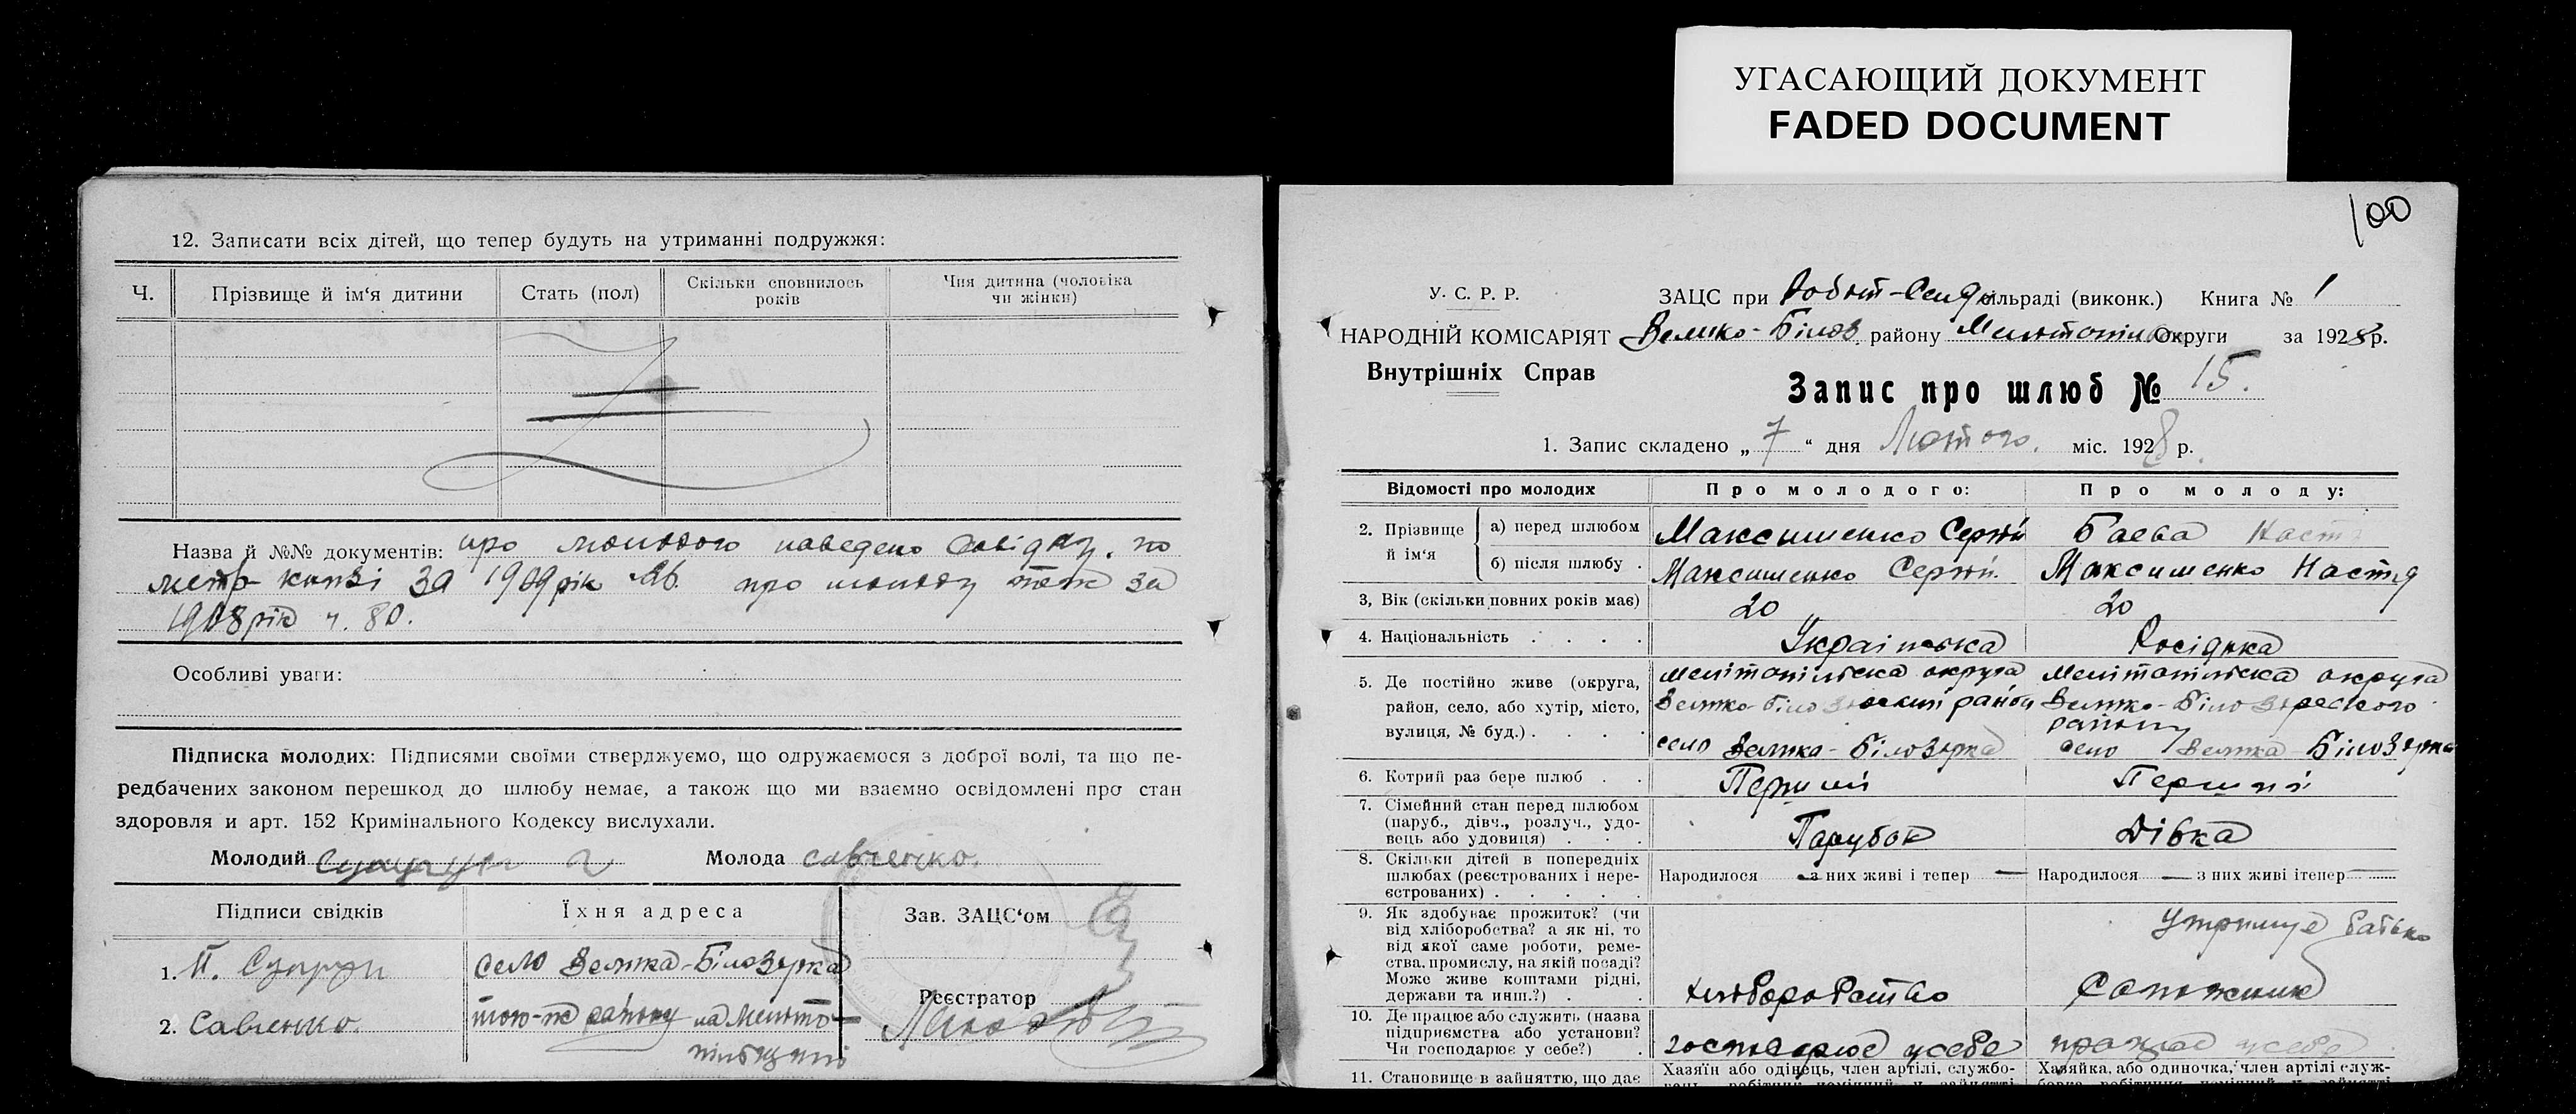 УГАСАЮЩИЙ ДОКУМЕНТ
FADED DOCUMENT
12. Записати всіх дітей, що тепер будуть на утриманні подружжя:
Ч. Прізвище й ім‘я дитини Стать (пол) Скільки сповнилось років Чия дитина (чоловіка чи жінки)
Назва й №№ документів: про молодого наведено довідку. по
метр книзі за 1909 рік про молоду теж за
1908 рік ч. 80.
Особливі уваги:
Підписка молодих: Підписями своїми стверджуємо, що одружаємося з доброї волі, та що пе-
редбачених законом перешкод до шлюбу немає, а також що ми взаємно освідомлені про стан
здоровля и арт. 152 Кримінального Кодексу вислухали.
Молодий Молода Савченко.
Підписи свідків Їхня адреса Зав. ЗАЦС‘ом
1. П. Супрун село Велика-Білозерка
Реєстратор
2. Савченко. того-ж району на Меліто-
пільщині
100
У. С. Р. Р. ЗАЦС при сільраді (виконк.) Книга № 1
НАРОДНІЙ КОМІСАРІЯТ Велико-Білоз. району Мелітопільс Округи за 1928 р.
Внутрішніх Справ
Запис про шлюб № 15.
1. Запис складено „ 7 “ дня Лютого. міс. 1928 р.
Відомості про молодих Про молодого: Про молоду:
2. Прізвище й ім‘я а) перед шлюбом Максименко Сергій Баева Наст
б) після шлюбу . Максименко Сергій. Максименко Настя
3, Вік (скільки повних років має) 20 20
4. Національність . . . . Українська Росіянка
5. Де постійно живе (округа, Мелітопільска округа Мелітопільска округа
район, село, або хутір, місто, Велико-Білозерский район Велико-Білозерского
району
вулиця, № буд.) . . . . село Велика-Білозерка село Велика Білозерка
6. Котрий раз бере шлюб . . Перший Перший
7. Сімейний стан перед шлюбом
(паруб., дівч., розлуч., удо-
вець або удовиця) . . . Парубок Дівка
8. Скільки дітей в попередніх
шлюбах (реєстрованих і нере- Народилося — з них живі і тепер — Народилося — з них живі ітепер —
єстрованих) . . . . .
9. Як здобуває прожиток? (чи
від хліборобства? а як ні, то Утримує батько
від якої саме роботи, реме-
ства, промислу, на якій посаді?
Може живе коштами рідні,
держави та инш.?) . . хліборобство Сапожник
10. Де працює або служить (назва
підприємства або установи?
Чи господарює у себе?) . господарює у себе працює у себе
11. Становище в зайняттю, що дає Хазяїн або одінець, член артілі, службо- Хазяйка, або одиночка, член артілі служ-